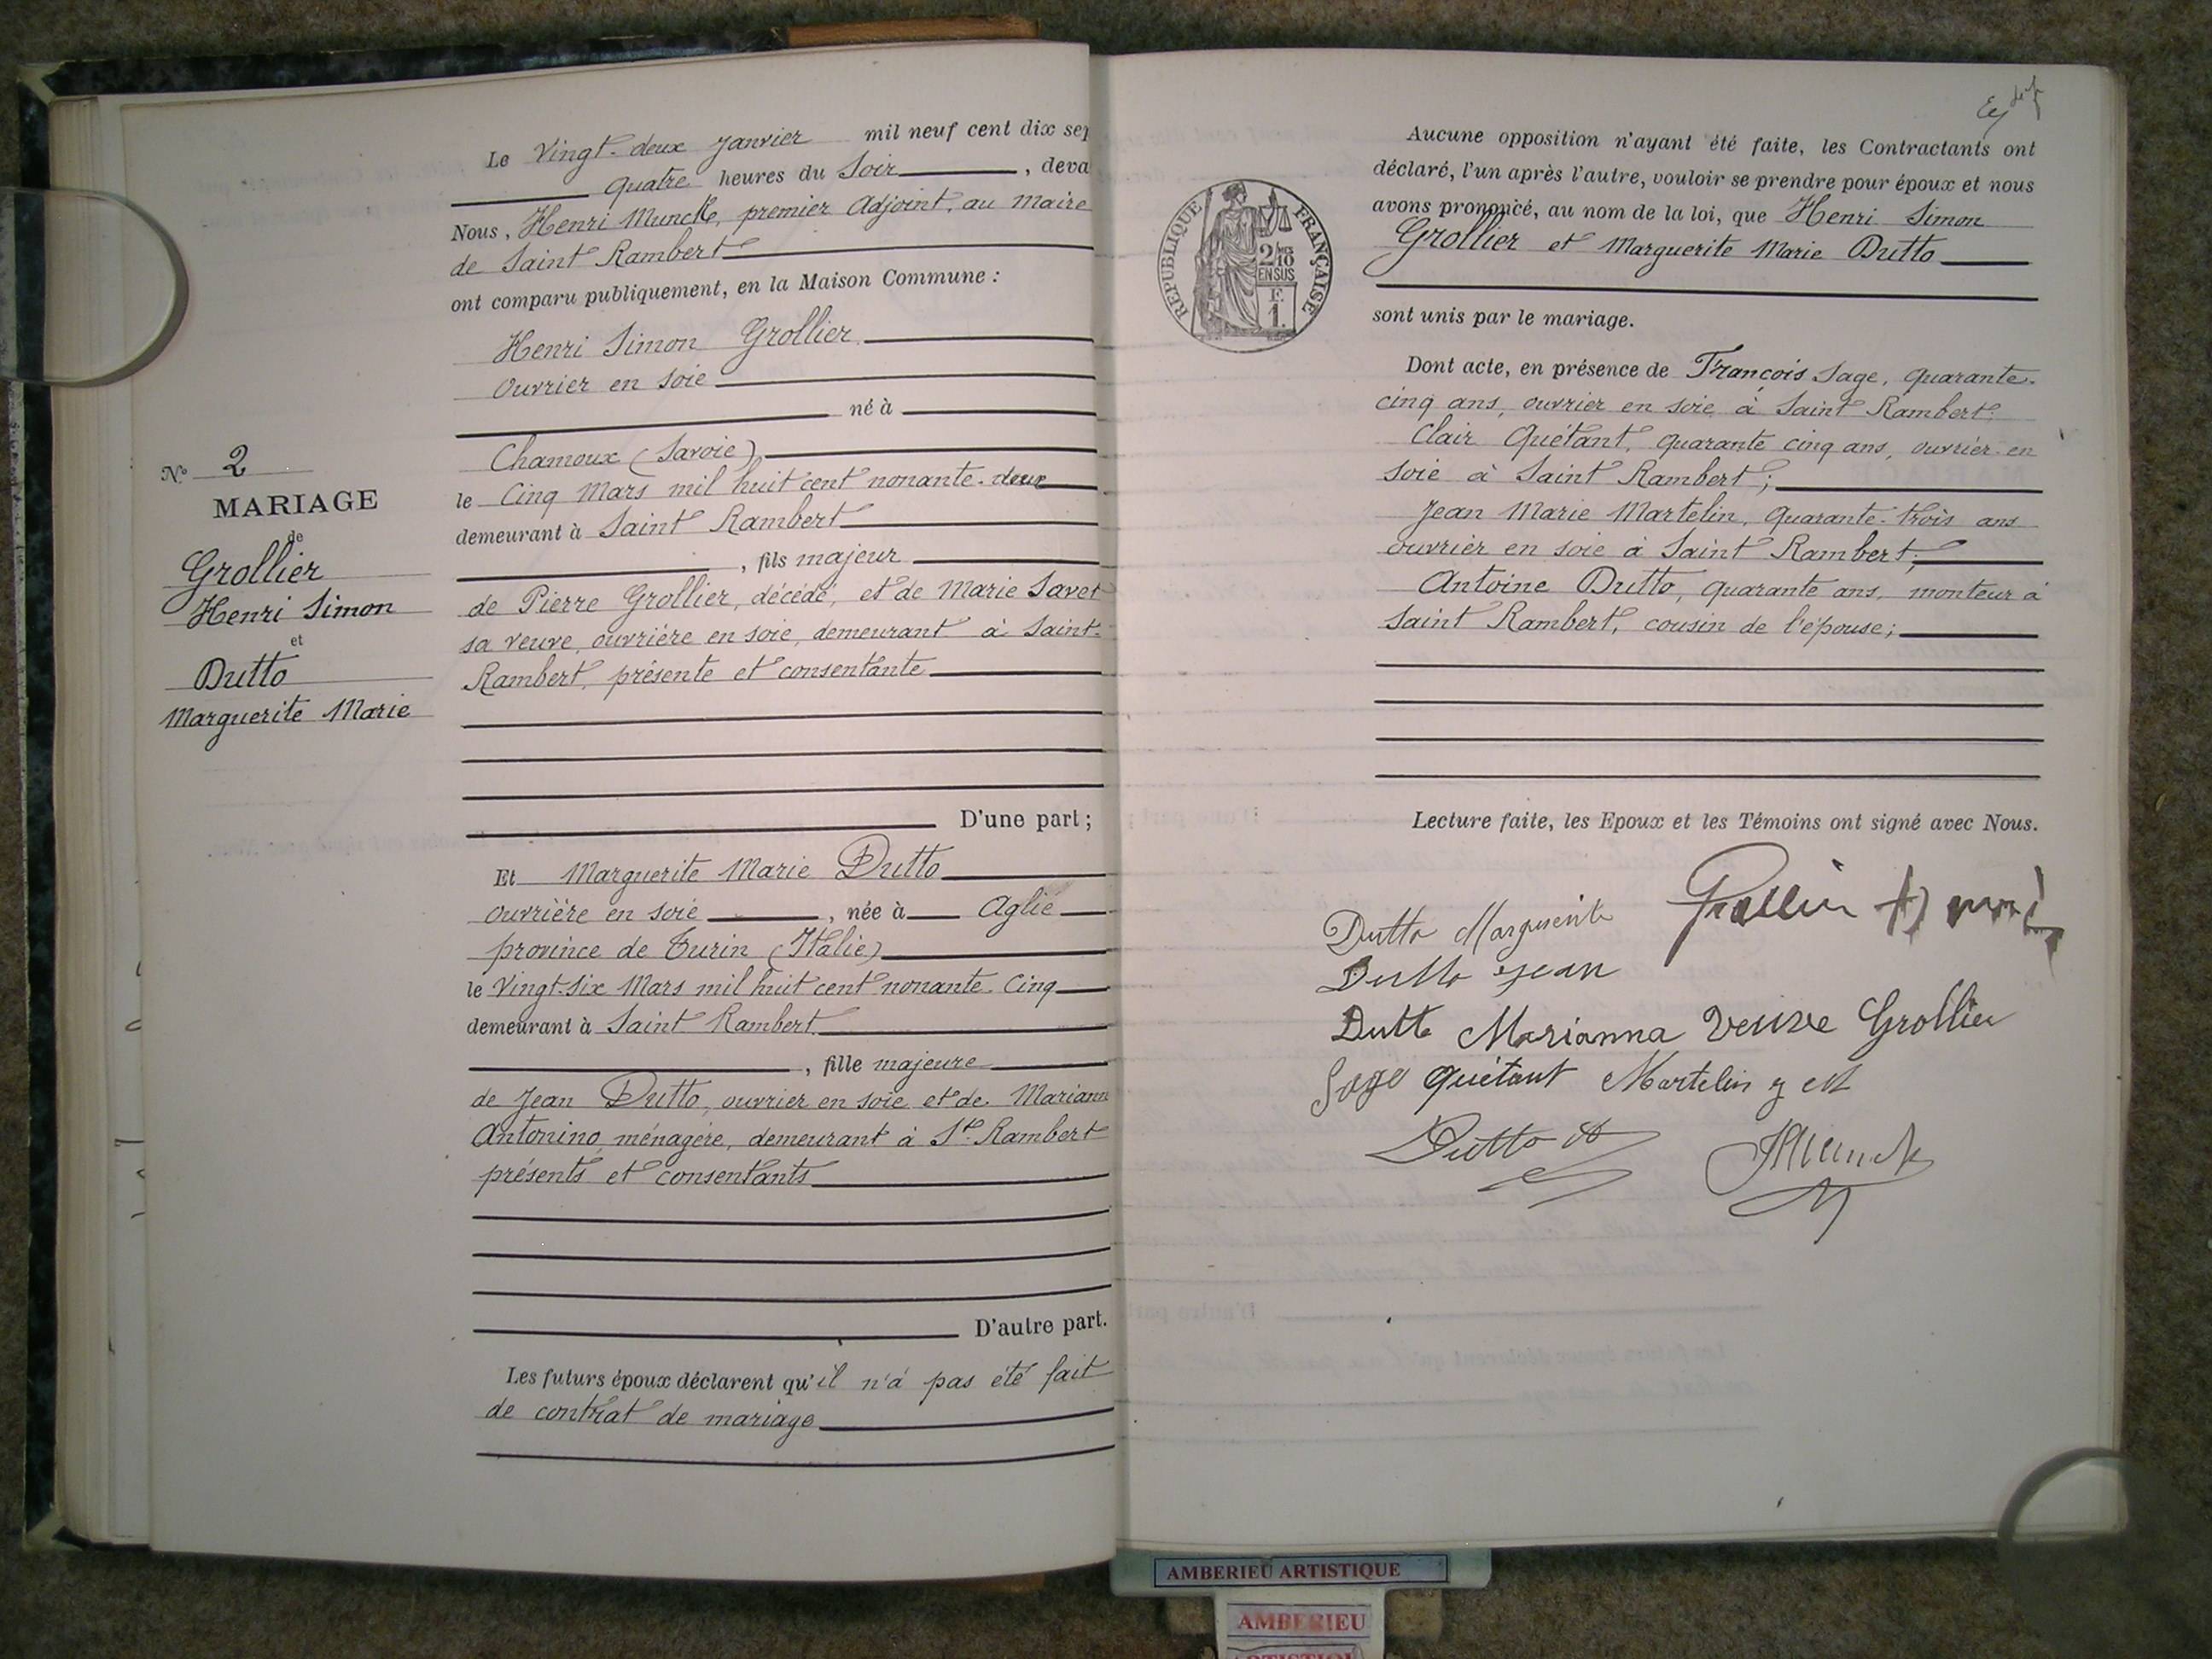 Le Vingt-deux Janvier mil neuf cent dix sep
quatre heures du Soir, deva
Nous, Henri Muncke, premier Adjoint, au Maire
de Saint Rambert
ont comparu publiquement, en la Maison Commune :
Henri Simon Grollier
Ouvrier en soie
né à
Chamoux (Savoie)
le Cinq Mars mil huit cent nonante-deux
demeurant à Saint Rambert
, fils majeur
de Pierre Grollier, décédé, et de Marie Savet
sa veuve, ouvrière en soie, demeurant à Saint-
Rambert, présente et consentante
D'une part ;
N° 2
MARIAGE
de
Grollier
Henri Simon
et
Dutto
Marguerite Marie
Et Marguerite Marie Dutto
ouvrière en soie, née à Aglié
province de Turin (Italie)
le Vingt-six Mars mil huit cent nonante-Cinq
demeurant à Saint Rambert
, fille majeure
de Jean Dutto, ouvrier en soie et de Mariann
Antonino, ménagère, demeurant à St Rambert
présents et consentants
D'autre part.
Les futurs époux déclarent qu'il n'a pas été fait
de contrat de mariage
Aucune opposition n'ayant été faite, les Contractants ont
déclaré, l'un après l'autre, vouloir se prendre pour époux et nous
avons prononcé, au nom de la loi, que Henri Simon
Grollier et Marguerite Marie Dutto
sont unis par le mariage.
RÉPUBLIQUE FRANÇAISE
2/10 MES
EN SUS
F.
1.
Dont acte, en présence de François Sage, quarante-
cinq ans, ouvrier en soie à Saint Rambert;
Clair Quétant, quarante cinq ans, ouvrier en
soie à Saint Rambert ;
Jean Marie Martelin, quarante-trois ans
ouvrier en soie à Saint Rambert;
Antoine Dutto, quarante ans, monteur à
Saint Rambert, cousin de l'épouse;
Lecture faite, les Epoux et les Témoins ont signé avec Nous.
Dutto Marguerite Grollier
Dutto Jean
Dutto Marianna Veuve Grollier
Sage Quétant Martelin J M
Dutto A HMunck
AMBERIEU ARTISTIQUE
AMBERIEU
ARTISTIQUE